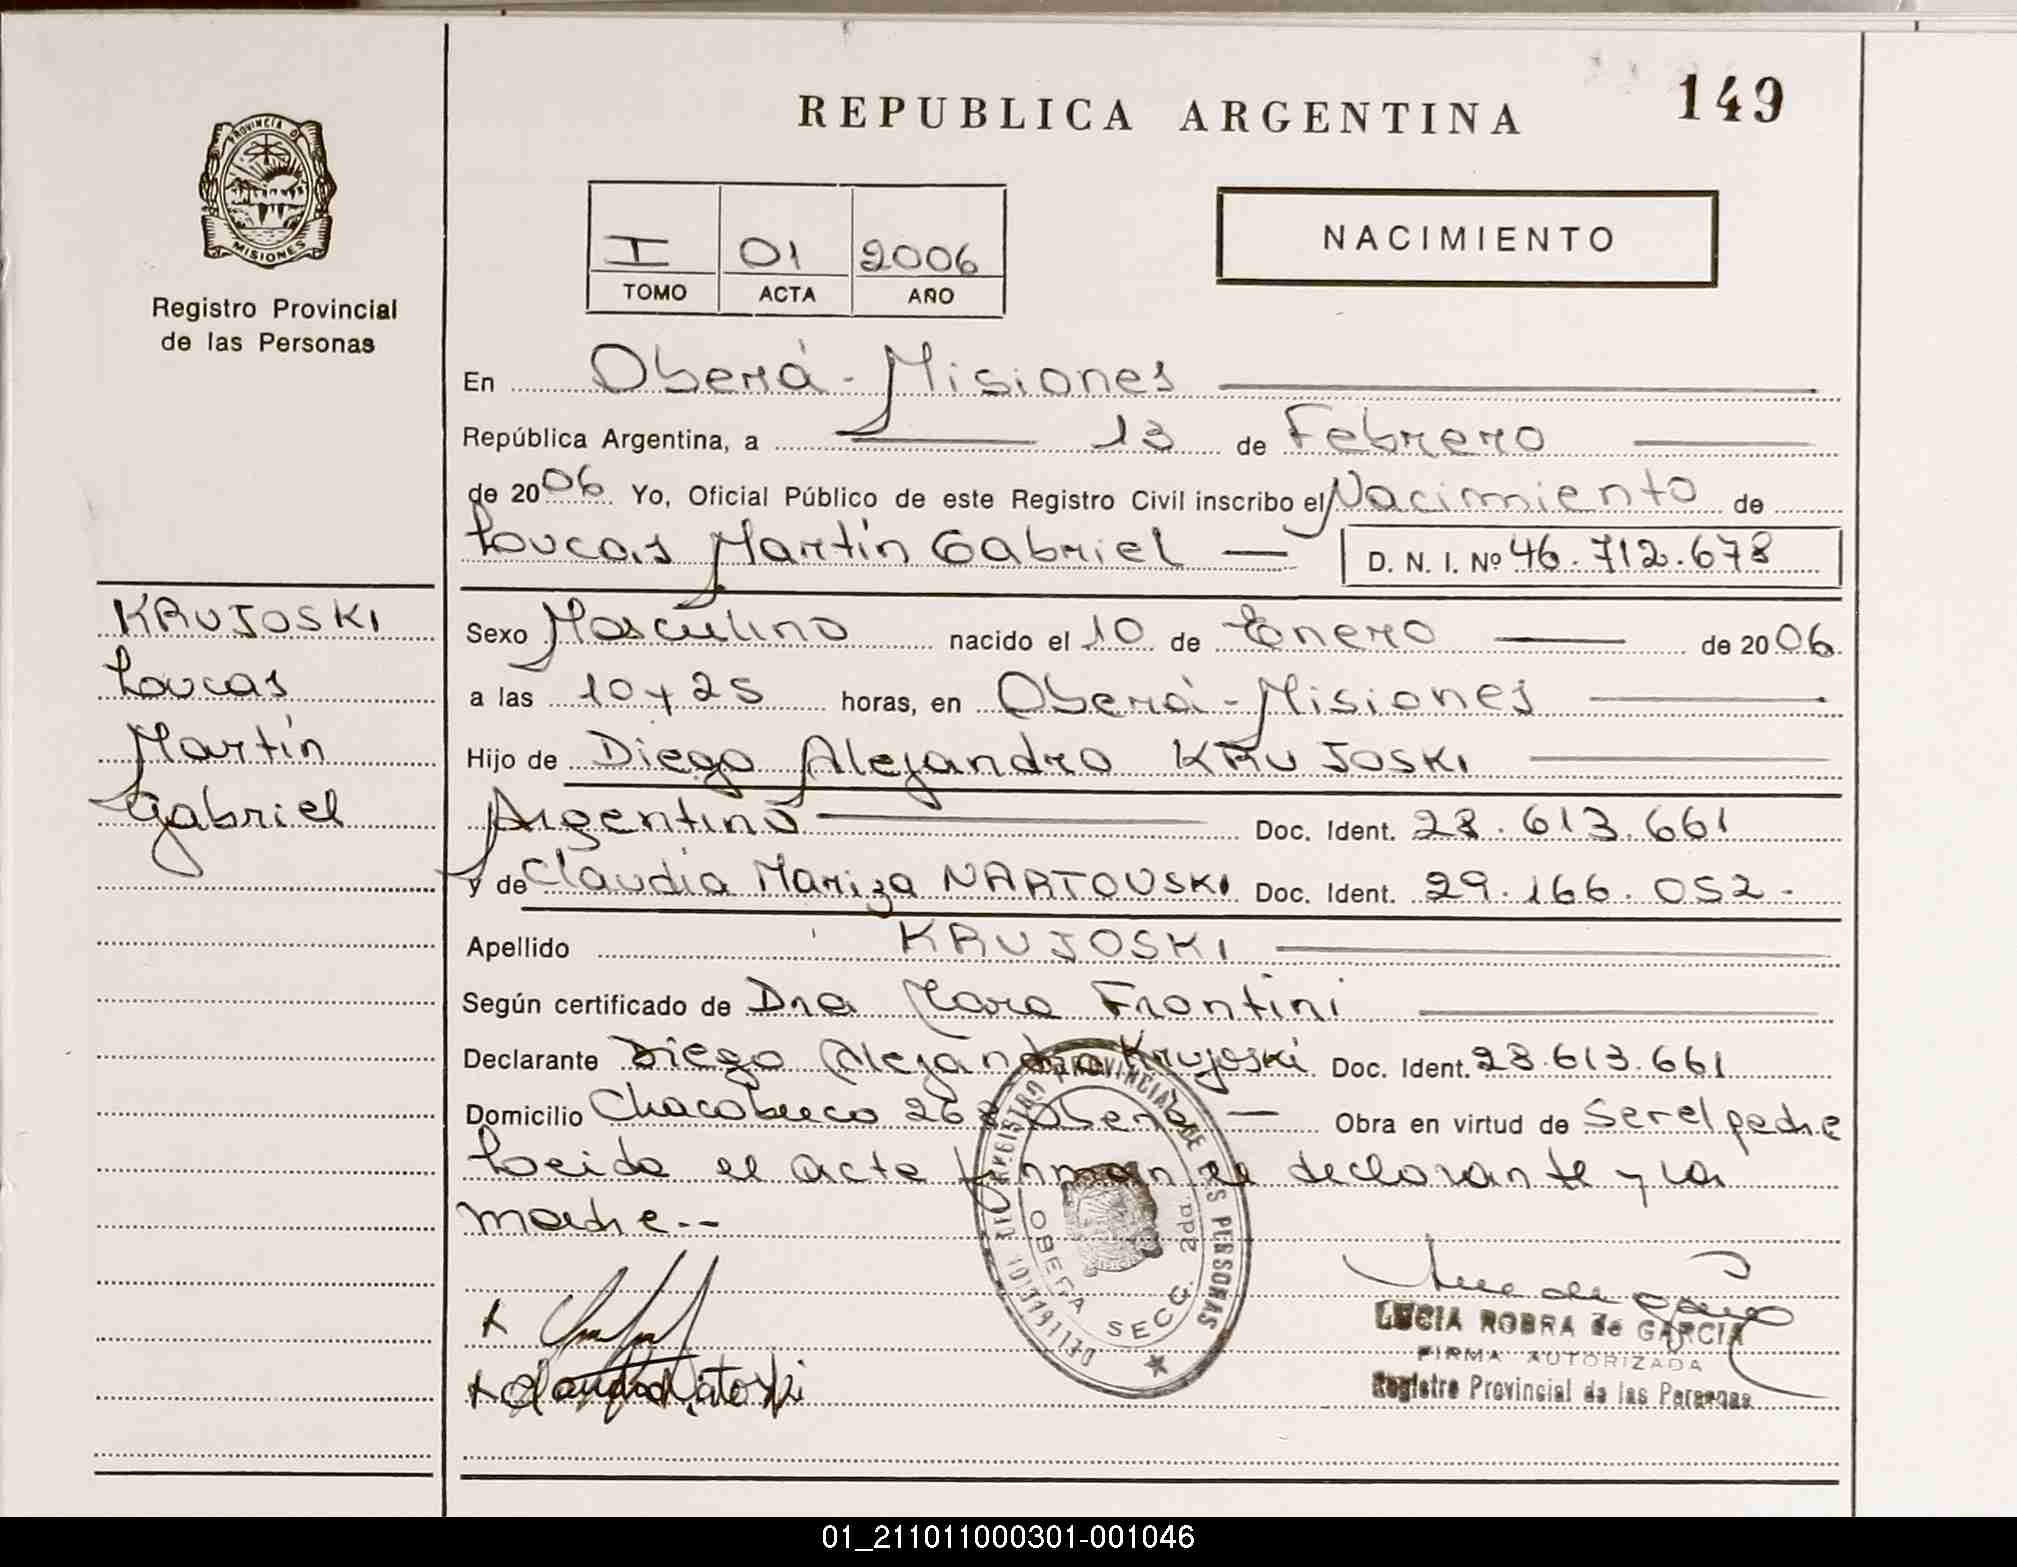 149
REPUBLICA ARGENTINA
PROVINCIA DE
MISIONES
Registro Provincial
de las Personas
NACIMIENTO
I 01 2006
TOMO ACTA AÑO
En Oberá - Misiones
República Argentina, a 13 de Febrero
de 2006 Yo, Oficial Público de este Registro Civil inscribo el Nacimiento de
Loucas Martín Gabriel D. N. I. Nº 46.712.678
KRUJOSKI
Loucas
Martín
Gabriel
Sexo Masculino nacido el 10 de Enero de 2006
a las 10 y 25 horas, en Oberá - Misiones
Hijo de Diego Alejandro KRUJOSKI
Argentino Doc. Ident. 28.613.661
y de Claudia Mariza NARTOUSKI Doc. Ident. 29.166.052-
Apellido KRUJOSKI
Según certificado de Dra Mara Frontini
Declarante Diego Alejandro Krujoski Doc. Ident. 28.613.661
Domicilio Chacobuco 268 Oberá Obra en virtud de Ser el padre
Leida el acta firman el declarante y la
madre--
REGISTRO PROVINCIAL DE LAS PERSONAS
OBERA SECC. 2da.
LUCIA ROBRA de GARCIA
FIRMA AUTORIZADA
Registro Provincial de las Personas
01_211011000301-001046